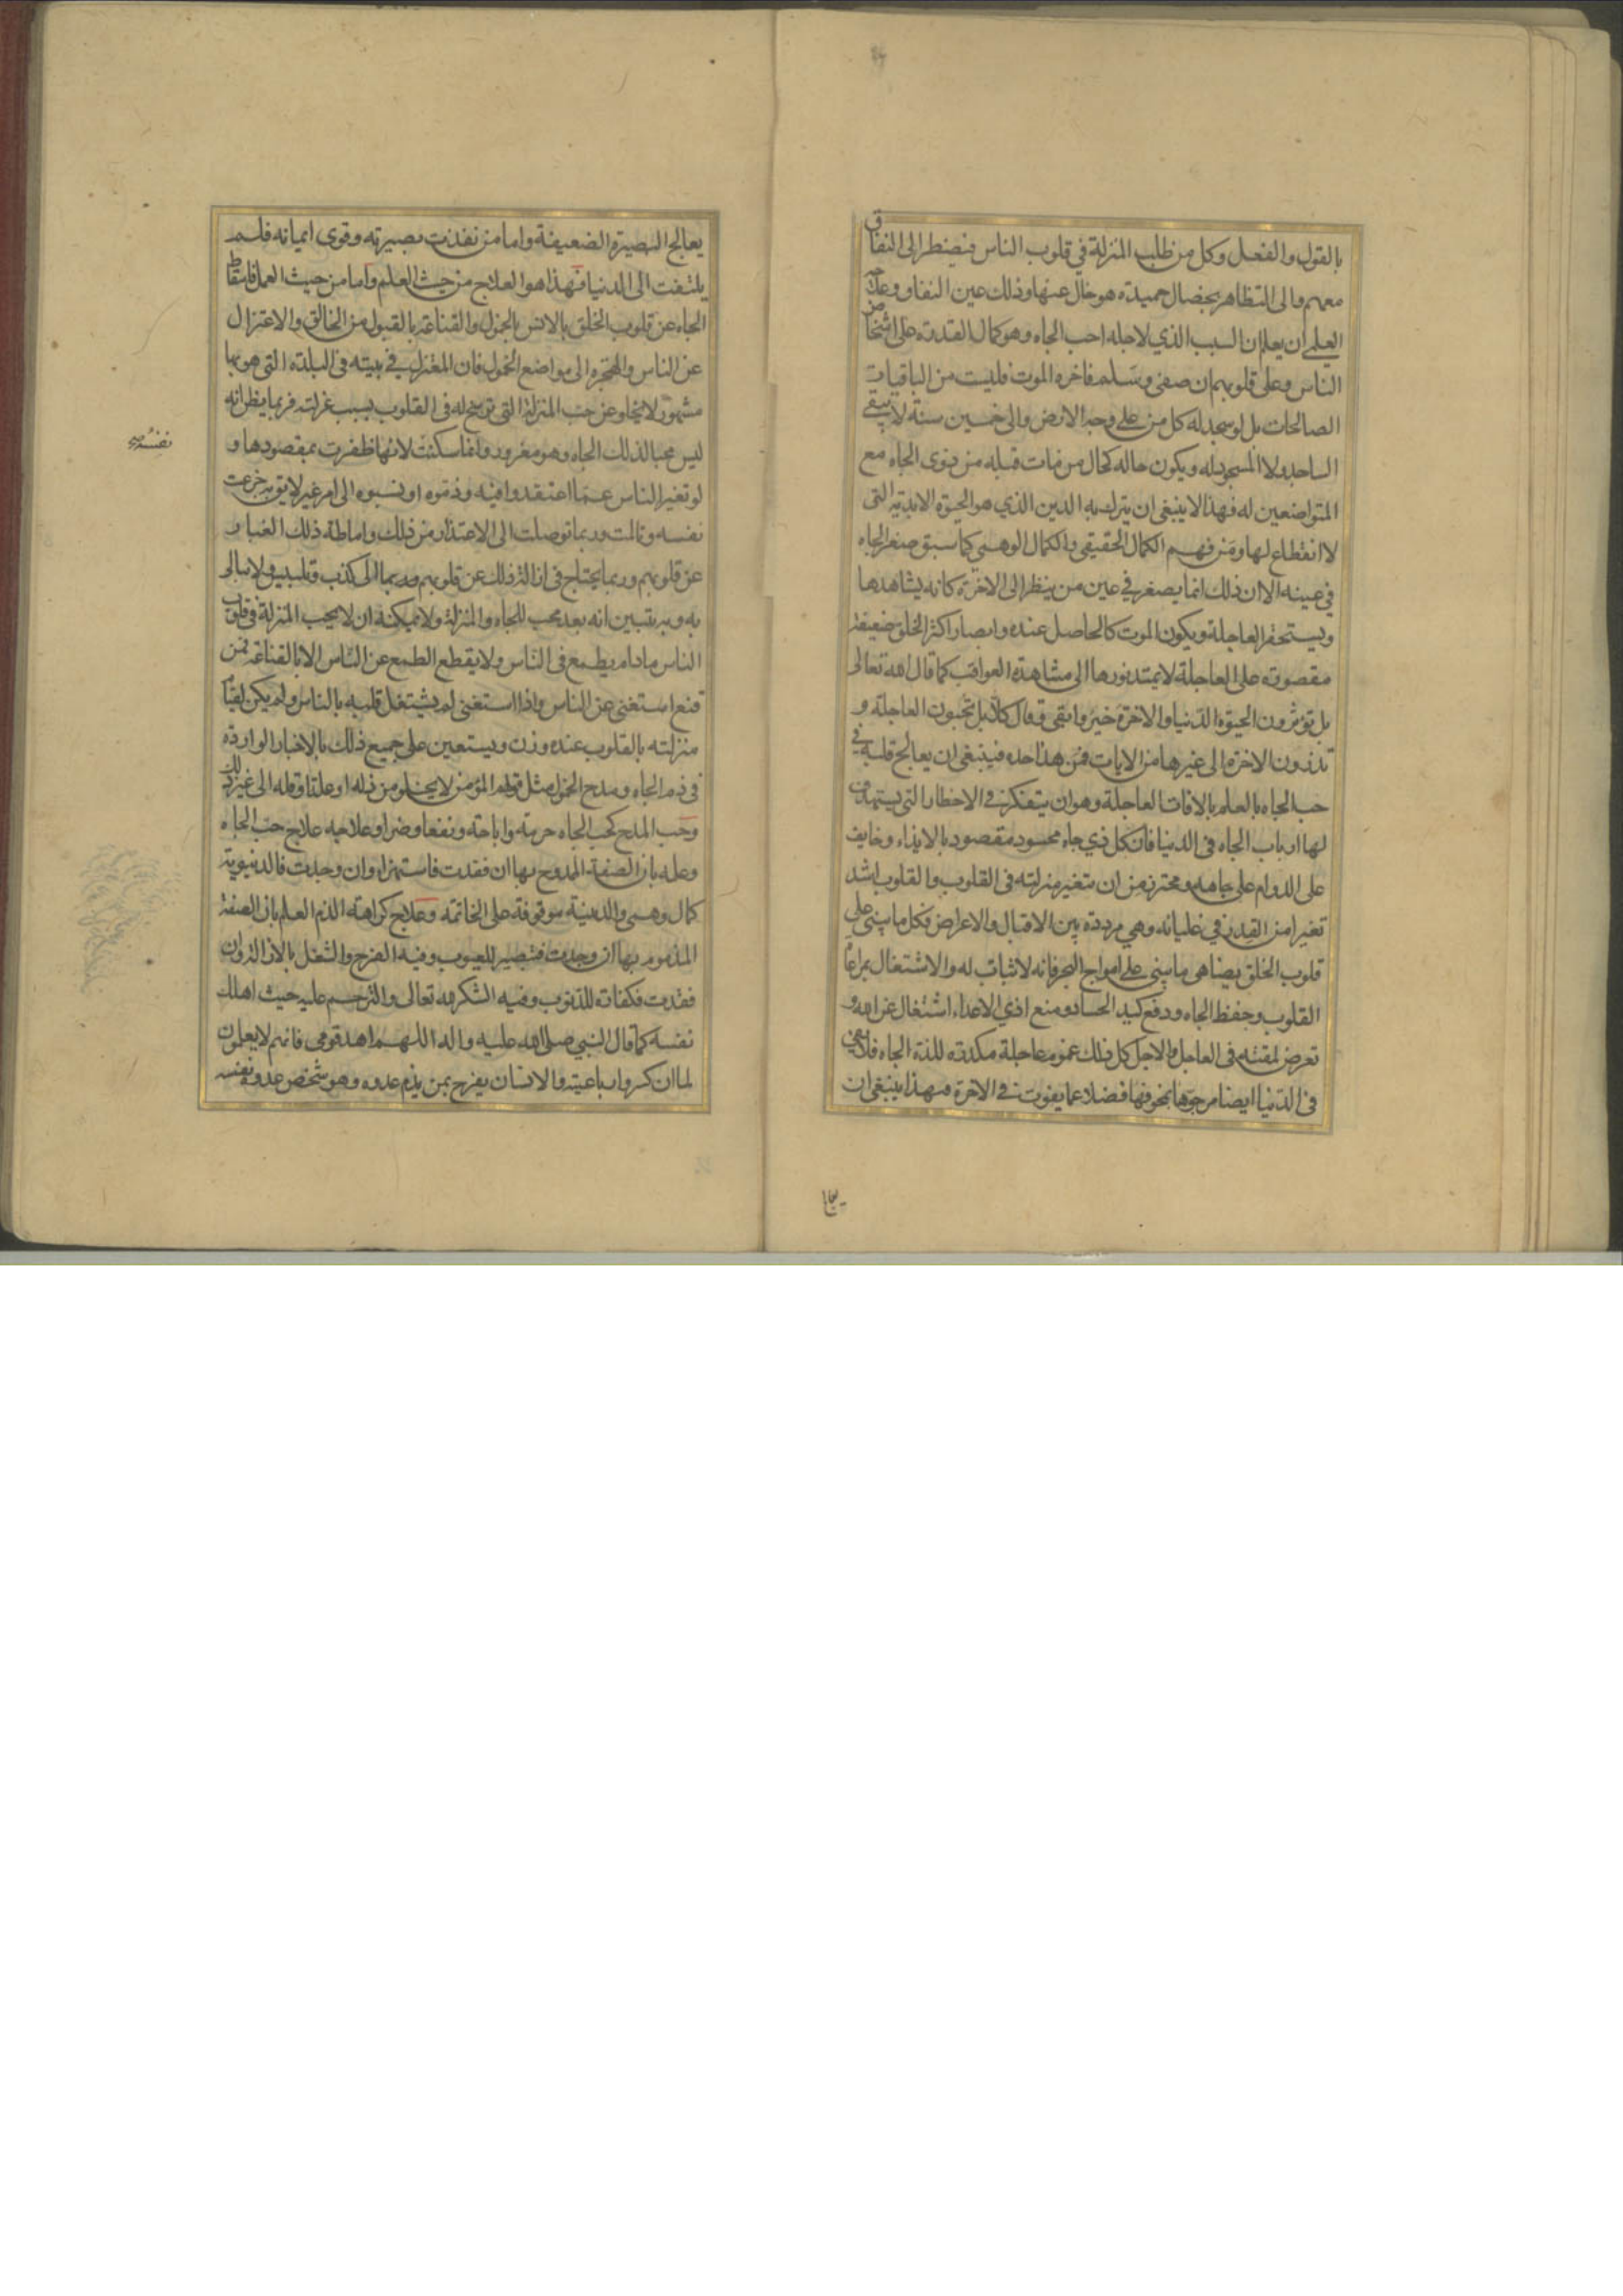 بالقول والفعل وكل من طلب المنزلة في قلوب الناس فيضطر الى النفاق
معهم والى التظاهر بخصال حميدة هو خال عنها وذلك عين النفاق وعلاجه
العلمي ان يعلم ان السبب الذي لاجله احب الجاه وهو كمال القدرة على اشخاص
الناس وعلى قلوبهم ان صفى وسلم فاخره الموت فليست من الباقيات
الصالحات بل لو سجد له كل من على وجه الارض والى خمسين سنة لا يبقى
الساجد ولا المسجود له ويكون حاله كحال من مات قبله من ذوى الجاه مع
المتواضعين له فهذا لا ينبغى ان يترك به الدين الذي هو الحيوة الابدية التى
لا انقطاع لها ومن فهم الكمال الحقيقي والكمال الوهمي كما سبق صغر الجاه
في عينه الا ان ذلك انما يصغر في عين من ينظر الى الاخرة كانه يشاهدها
ويستحقر العاجلة ويكون الموت كالحاصل عنده وابصار اكثر الخلق ضعيفة
مقصورة على العاجلة لا يمتد نورها الى مشاهدة العواقب كما قال الله تعالى
بل تؤثرون الحيوة الدنيا والاخرة خير وابقى وقال كلا بل تحبون العاجلة و
تذرون الاخرة الى غيرها من الايات فمن هذا حده فينبغى ان يعالج قلبه في
حب الجاه بالعلم بالافات العاجلة وهو ان يتفكر في الاخطار التى يستهدف
لها ارباب الجاه فى الدنيا فان كل ذي جاه محسود مقصود بالايذاء وخايف
على الدوام على جاهه ومحترز من ان تتغير منزلته فى القلوب والقلوب اشد
تغيرا من القدر في غليانه وهي مرددة بين الاقبال والاعراض فكل ما يبنى على
قلوب الخلق يضاهى ما يبنى على امواج البحر فانه لاثبات له والاشتغال بمراعاة
القلوب وحفظ الجاه ودفع كيد الحساد ومنع اذي الاعداء اشتغال عن الله و
تعرض لمقته فى العاجل والاجل كل ذلك غموم عاجلة مكدرة للذة الجاه فلا يفى
فى الدنيا ايضا مرجوها بمخوفها فضلا عما يفوت في الاخرة فبهذا ينبغى ان
يعالج
يعالج البصيرة الضعيفة واما من نفذت بصيرته وقوى ايمانه فلم
يلتفت الى الدنيا فهذا هو العلاج من حيث العلم واما من حيث العمل فاسقاط
الجاه عن قلوب الخلق بالانس بالخمول والقناعة بالقبول من الخالق والاعتزال
عن الناس والهجرة الى مواضع الخمول فان المعتزل في بيته فى البلدة التى هو بها
مشهور لا يخلو عن حب المنزلة التى ترسخ له فى القلوب بسبب عزلته فربما يظن انه
ليس محبا لذلك الجاه وهو مغرور وانما سكنت لانها ظفرت بمقصودها و
نفسه
لو تغير الناس عما اعتقدوا فيه وذموه او نسبوه الى امر غير لايق به جزعت
نفسه وتالمت وربما توصلت الى الاعتذار من ذلك واماطة ذلك الغبار
عن قلوبهم وربما يحتاج فى ازالة ذلك عن قلوبهم الى كذب وتلبيس ولا يبالى
به وبه يتبين انه بعد محب للجاه والمنزلة ولا يمكنه ان لا يحب المنزلة في قلوب
الناس مادام يطمع فى الناس ولا يقطع الطمع عن الناس الا بالقناعة فمن
قنع استغنى عن الناس واذا استغنى لم يشتغل قلبه بالناس ولم يكن لقيام
منزلته بالقلوب عنده وزن ويستعين على جميع ذلك بالاخبار الواردة
فى ذم الجاه ومدح الخمول مثل قولهم المؤمن لا يخلو من ذلة او علة او قلة الى غير ذلك
وحب المدح كحب الجاه حرمة واباحة ونفعا وضرا وعلاجه علاج حب الجاه
وعلمه بان الصفة الممدوح بها ان فقدت فاستهزاء وان وجدت فالدنيوية
كمال وهمي والدينية موقوفة على الخاتمة وعلاج كراهة الذم العلم بان الصفة
المذموم بها ان وجدت فتبصير للعيوب وفيه الفرح والشغل بالازالة وان
فقدت فكفارة للذنوب وفيه الشكر لله تعالى والترحم عليه حيث اهلك
نفسه كما قال النبي صلى الله عليه واله اللهم اهد قومي فانهم لا يعلمون
لما ان كسروا رباعيته والانسان يفرح بمن يذم عدوه وهو شخص عدوه نفسه